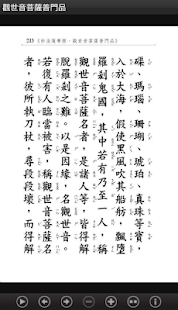 觀世音菩薩普門品
213 《妙法蓮華經．觀世音菩薩普門品》
磲、瑪瑙、珊瑚、琥珀、真珠等寶，
入於大海，假使黑風吹其船舫，飄墮
羅剎鬼國，其中若有乃至一人，稱
觀世音菩薩名者，是諸人等，皆得解
脫羅剎之難。以是因緣，名觀世音。
若復有人臨當被害，稱觀世音菩薩名
者，彼所執刀杖，尋段段壞，而得解